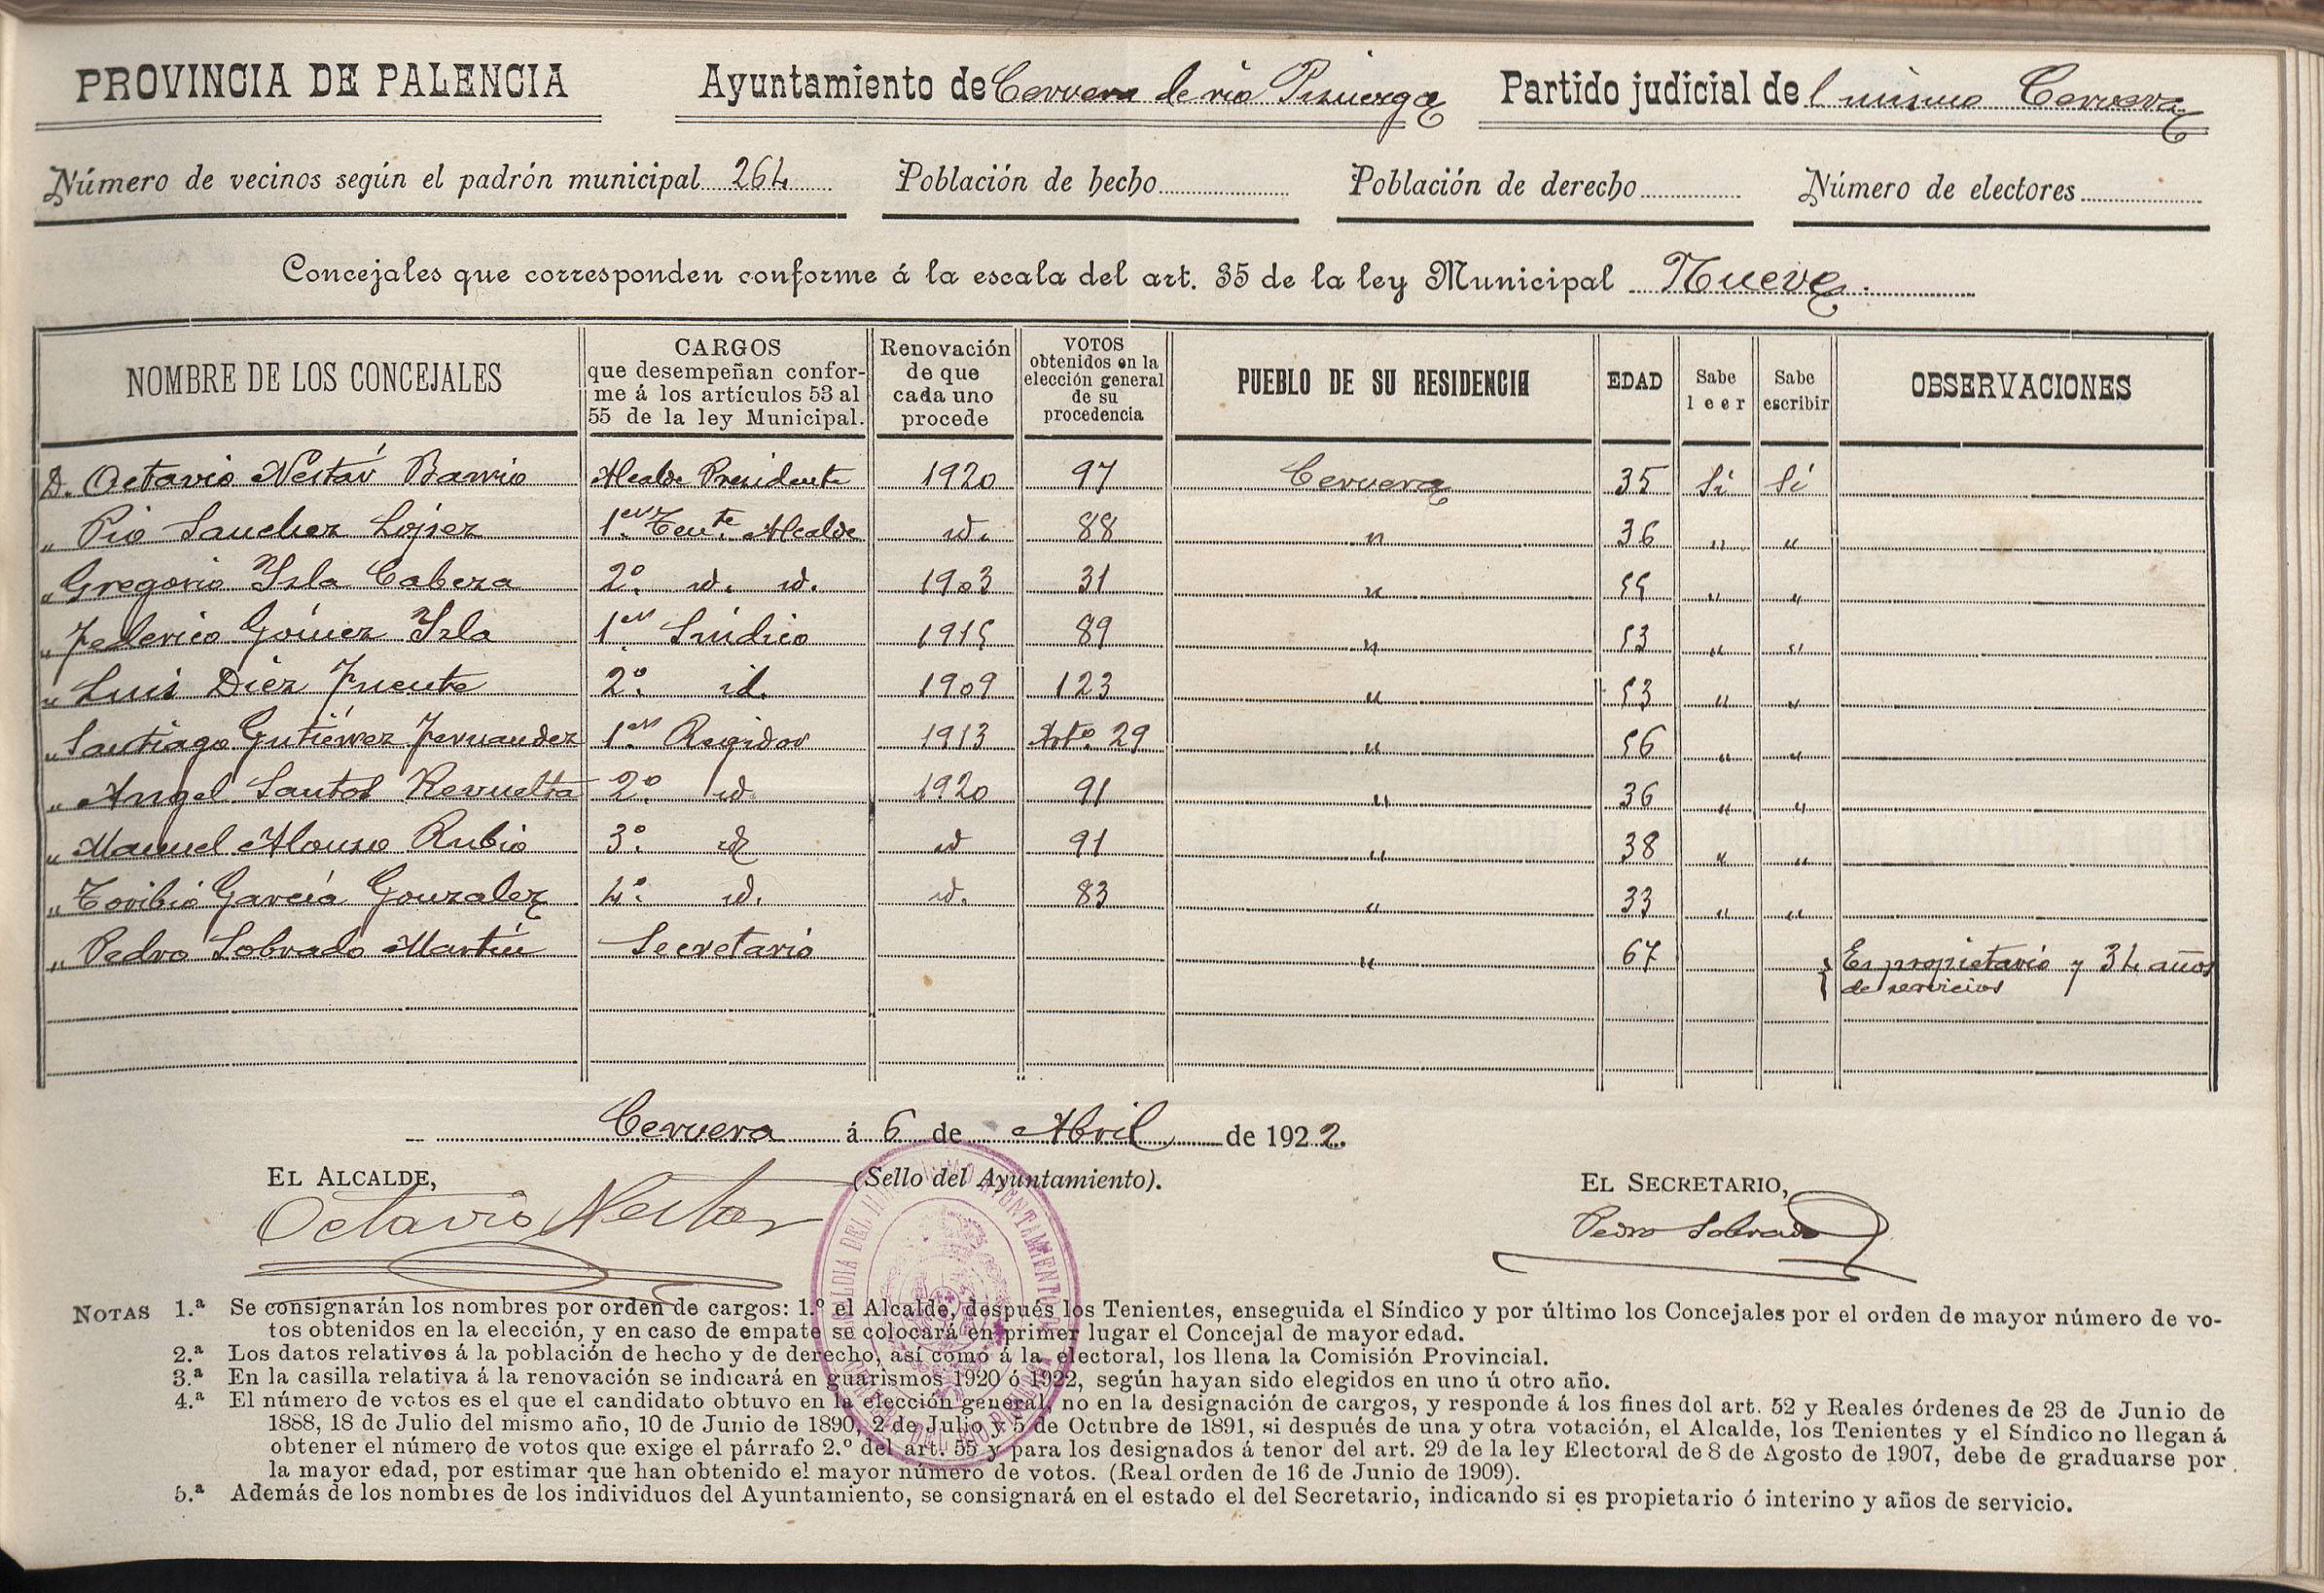 PROVINCIA DE PALENCIA Ayuntamiento de Cervera de rio Pisuerga Partido judicial del mismo Cervera
Número de vecinos según el padrón municipal 264 Población de hecho Población de derecho Número de electores
Concejales que corresponden conforme á la escala del art. 35 de la ley Municipal Nueve.
NOMBRE DE LOS CONCEJALES
CARGOS
que desempeñan confor-
me á los artículos 53 al
55 de la ley Municipal.
Renovación
de que
cada uno
procede
VOTOS
obtenidos en la
elección general
de su
procedencia
PUEBLO DE SU RESIDENCIA
EDAD
Sabe
leer
Sabe
escribir
OBSERVACIONES
D. Octavio Nestár Barrio Alcalde Presidente 1920 97 Cervera 35 Sí Sí
" Pio Sanchez Lopez 1er Tente. Alcalde id. 88 " 36 " "
" Gregorio Ysla Cabeza 2º. id. id. 1903 31 " 55 " "
" Federico Gómez Ysla 1er Síndico 1915 89 " 53 " "
" Luis Diez Fuente 2º. id. 1909 123 " 53 " "
" Santiago Gutiérrez Fernandez 1er Regidor 1913 Artº. 29 " 56 " "
" Angel Santos Revuelta 2º. id. 1920 91 " 36 " "
" Manuel Alonso Rubio 3º. id id 91 " 38 " "
" Toribio García Gonzalez 4º. id. id. 83 " 33 " "
" Pedro Sobrado Martín Secretario " 67 Es propietario y 34 años
de servicios
Cervera á 6 de Abril de 1922.
EL ALCALDE, (Sello del Ayuntamiento). EL SECRETARIO,
Octavio Nestar Pedro Sobrado
NOTAS 1.ª Se consignarán los nombres por orden de cargos: 1.º el Alcalde, después los Tenientes, enseguida el Síndico y por último los Concejales por el orden de mayor número de vo-
tos obtenidos en la elección, y en caso de empate se colocará en primer lugar el Concejal de mayor edad.
2.ª Los datos relativos á la población de hecho y de derecho, así como á la electoral, los llena la Comisión Provincial.
3.ª En la casilla relativa á la renovación se indicará en guarismos 1920 ó 1922, según hayan sido elegidos en uno ú otro año.
4.ª El número de votos es el que el candidato obtuvo en la elección general, no en la designación de cargos, y responde á los fines del art. 52 y Reales órdenes de 23 de Junio de
1888, 18 de Julio del mismo año, 10 de Junio de 1890, 2 de Julio y 5 de Octubre de 1891, si después de una y otra votación, el Alcalde, los Tenientes y el Síndico no llegan á
obtener el número de votos que exige el párrafo 2.º del art. 55 y para los designados á tenor del art. 29 de la ley Electoral de 8 de Agosto de 1907, debe de graduarse por
la mayor edad, por estimar que han obtenido el mayor número de votos. (Real orden de 16 de Junio de 1909).
5.ª Además de los nombres de los individuos del Ayuntamiento, se consignará en el estado el del Secretario, indicando si es propietario ó interino y años de servicio.